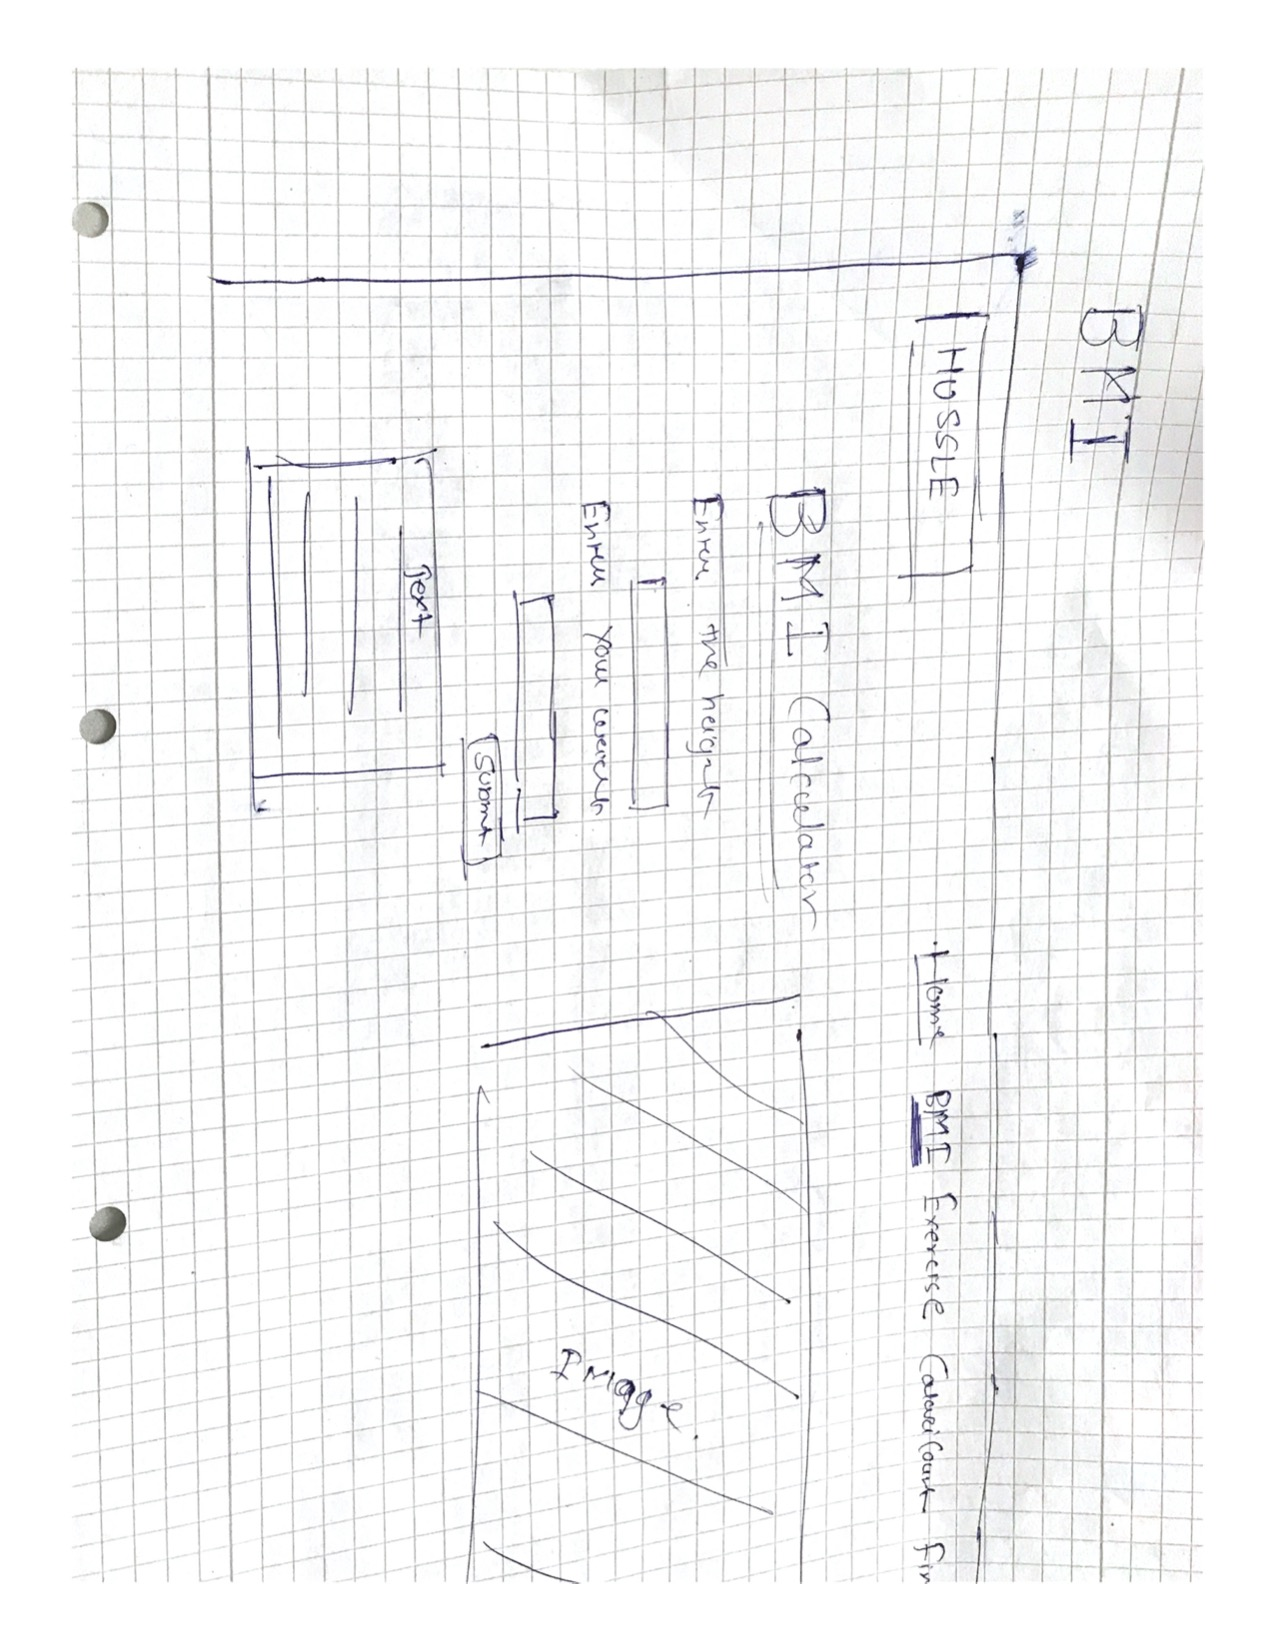 BMI
HUSSLE
Home BMI Exercise Calorie Count Fin
BMI Calculator
Enter the height
Enter your weight
Submit
Text
Image.